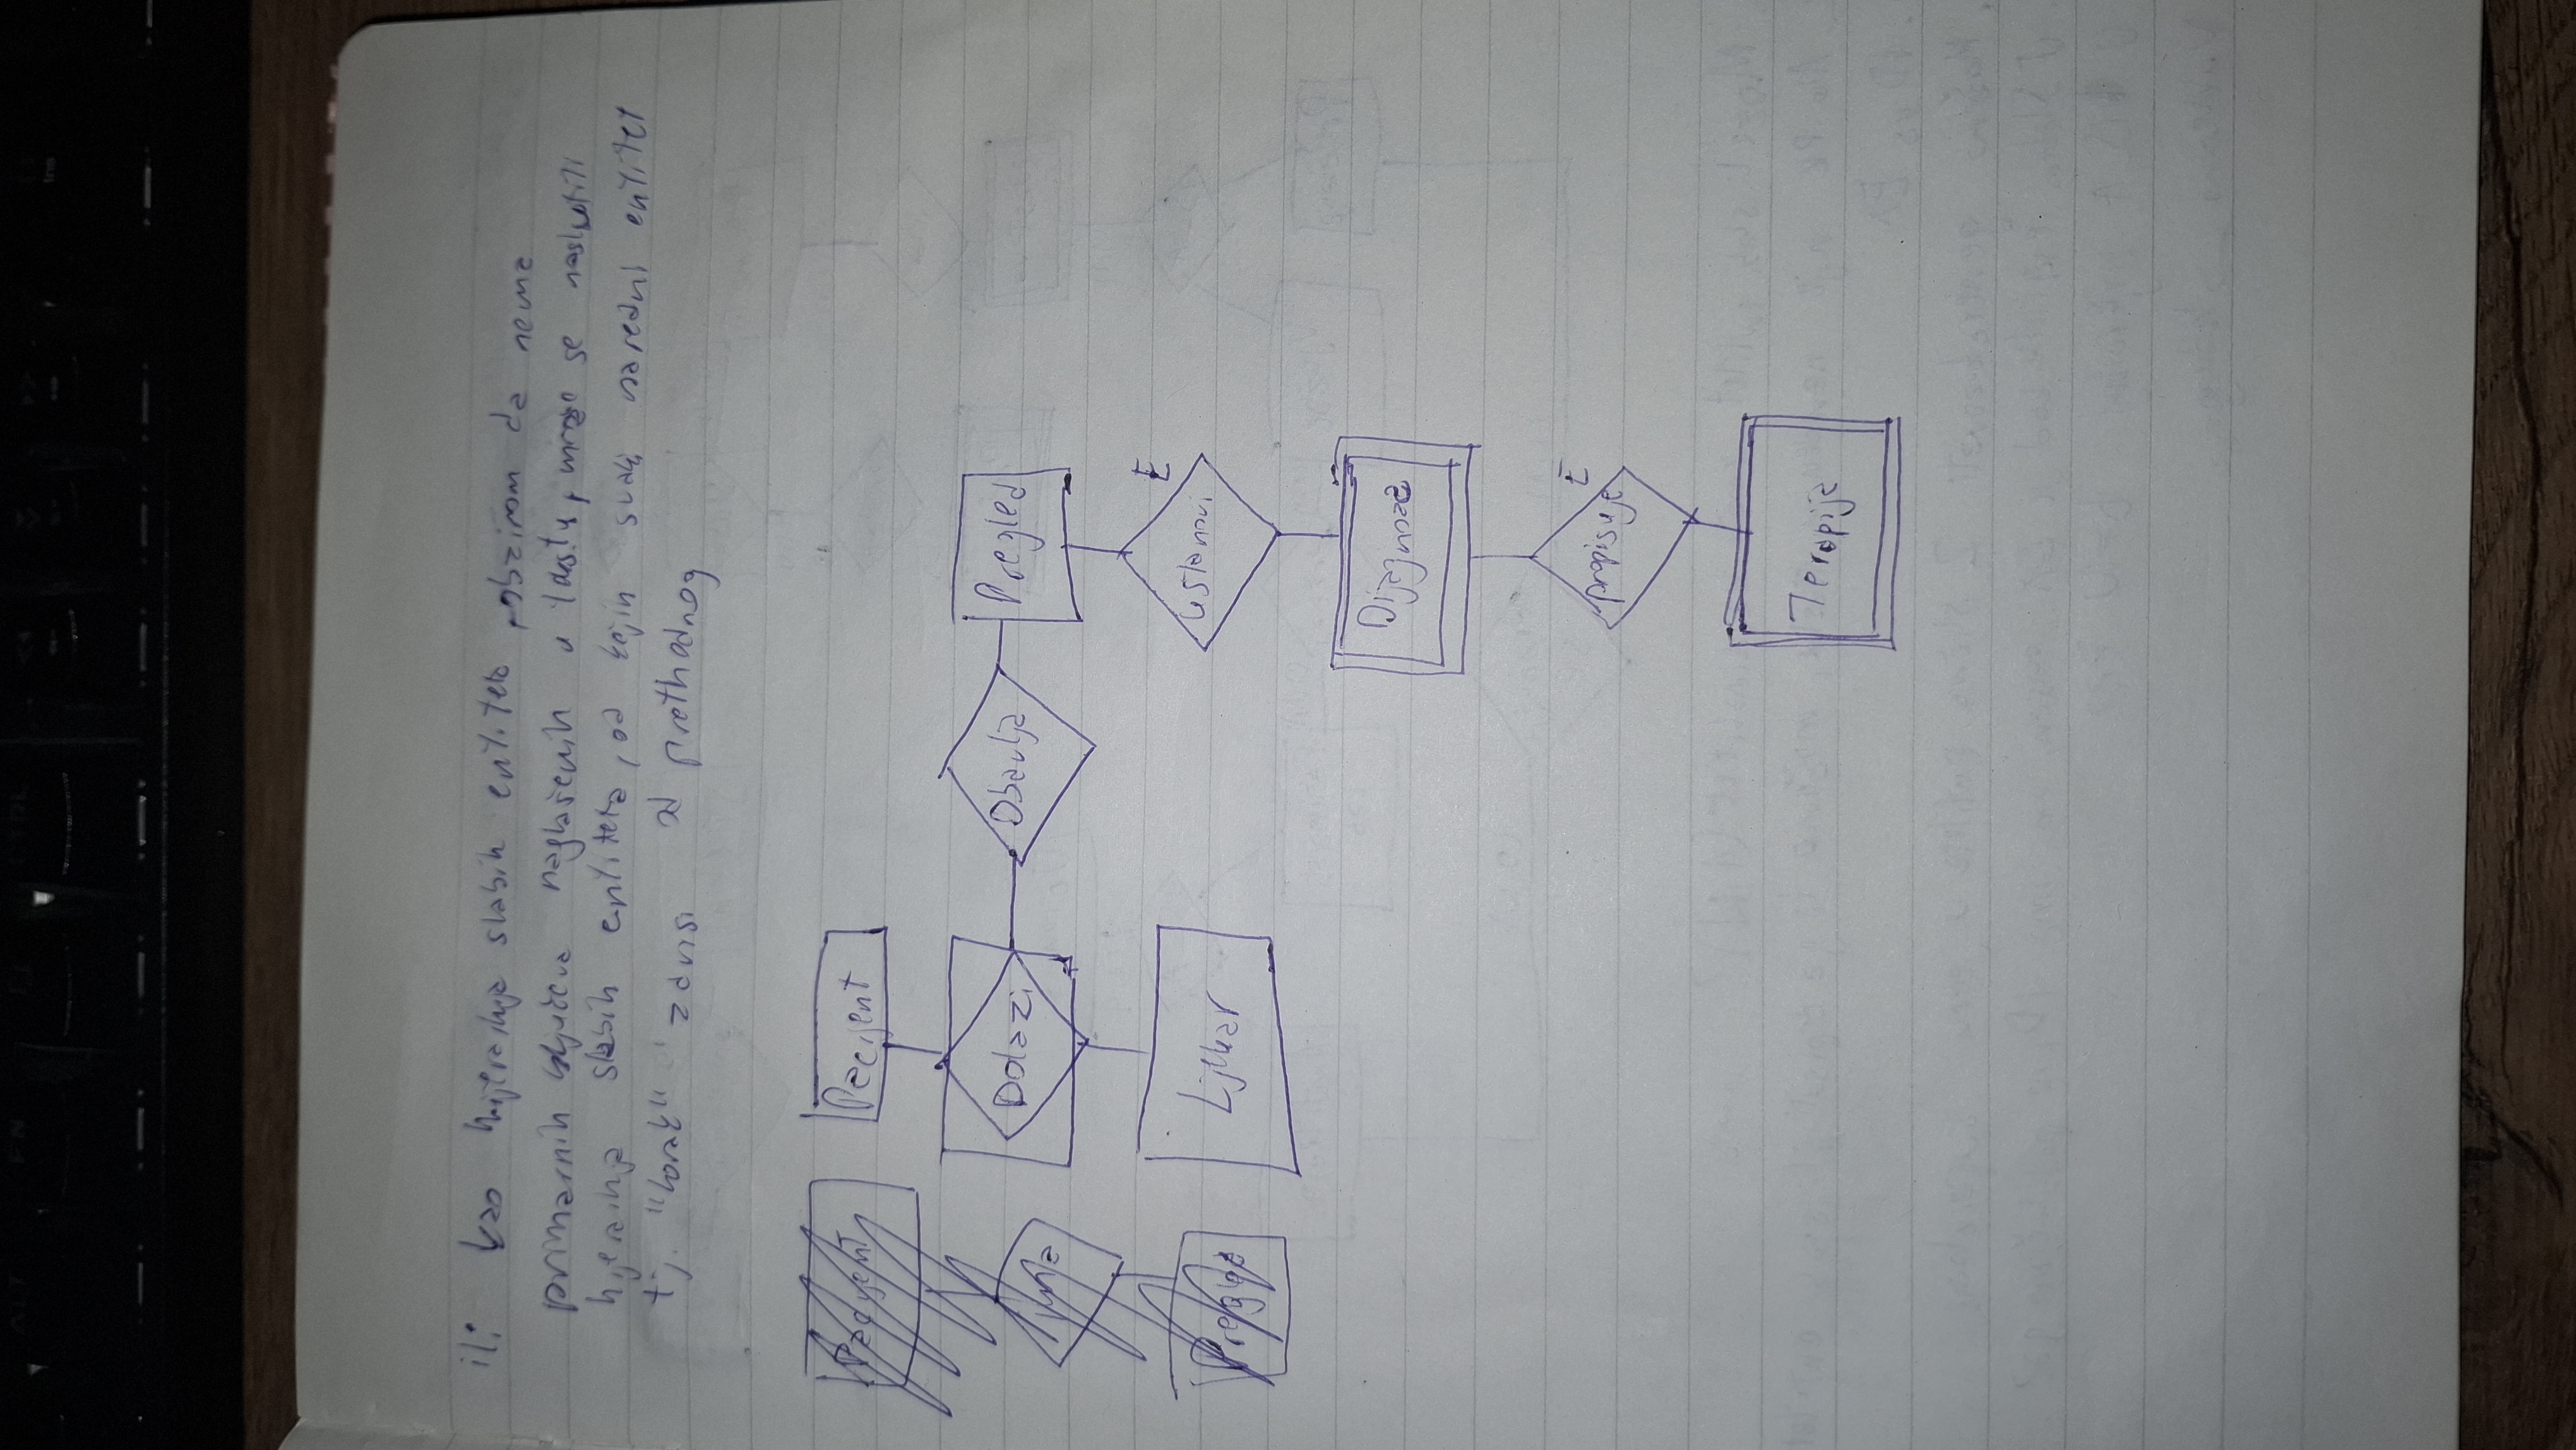 ili kao hijerarhija slabih entiteta, obzirom da nema
primarnih ključeva naglašenih u tekstu, može se naslutiti
hijerarhija slabih entiteta, od kojih svaki naredni entitet
tj. "korak" zavisi od prethodnog
Pacijent
Pacijent
Dolazi
Obavlja
Pregled
Ima
Ljekar
Ustanovi
E
Pregled
Dijagnoza
propisuje
E
Terapija
ALT
FN
CTRL
Ins